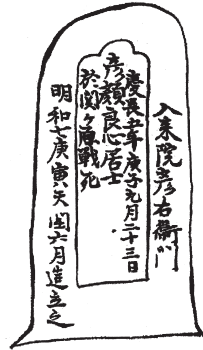 入来院彦右衛門
慶長五年庚子九月二十三日
彦顔良心居士
於関ヶ原戦死
明和七庚寅天閏六月造立之